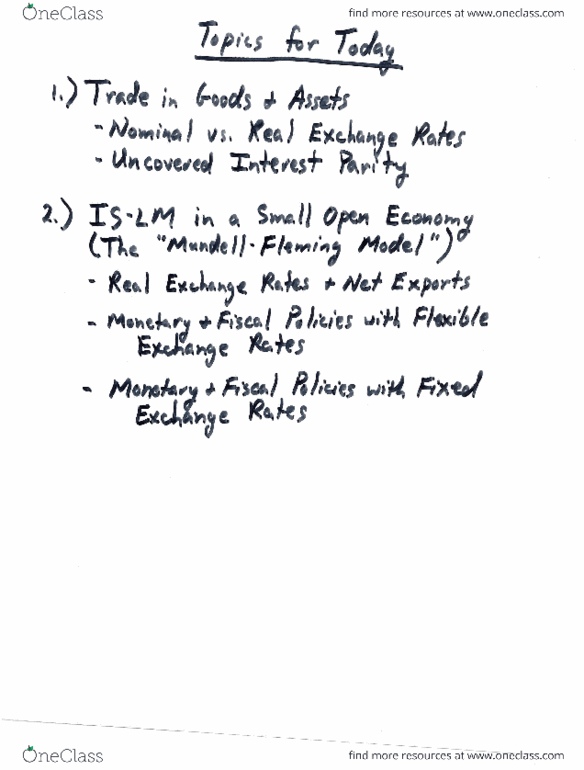 OneClass
find more resources at www.oneclass.com
Topics for Today
1.) Trade in Goods + Assets
- Nominal vs. Real Exchange Rates
- Uncovered Interest Parity
2.) IS-LM in a Small Open Economy
(The "Mundell-Fleming Model")
- Real Exchange Rates + Net Exports
- Monetary + Fiscal Policies with Flexible
Exchange Rates
- Monetary + Fiscal Policies with Fixed
Exchange Rates
OneClass
find more resources at www.oneclass.com